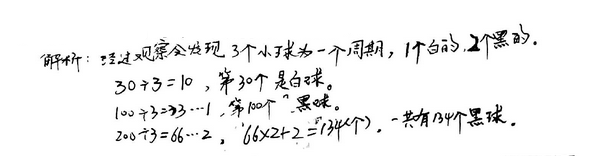 解析：经过观察会发现3个小球为一个周期，1个白的，2个黑的。
30÷3=10，第30个是白球。
100÷3=33…1，第100个是黑球。
200÷3=66…2，66×2+2=134(个)，一共有134个黑球。